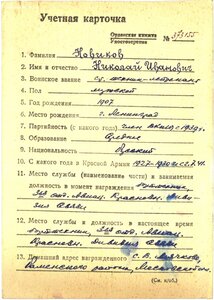 Учетная карточка
Орденская книжка
Удостоверения № 373155
1. Фамилия Новиков
2. Имя и отчество Николай Иванович
3. Воинское звание ст. техник-лейтенант
4. Пол мужской
5. Год рождения 1907
6. Место рождения г. Ленинград
7. Партийность (с какого года) член ВКП(б) с 1939 г.
8. Образование Среднее
9. Национальность Русский
10. С какого года в Красной Армии 1927-1930
11. Место службы (наименование части) и занимаемая
должность в момент награждения
Авиац. Краснозн.
12. Место службы и должность в настоящее время
Авиац.
Краснозн. Дивизия Связи
13. Домашний адрес награжденного
Раменского района, Московской
(См. н/об.)